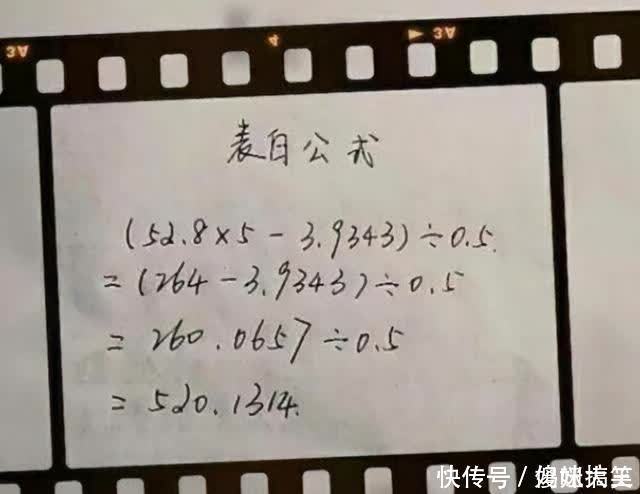 3A 4 ◀ 3A
表白公式
(52.8×5-3.9343)÷0.5.
=(264-3.9343)÷0.5
=260.0657÷0.5
=520.1314.
快传号/媳妇搞笑